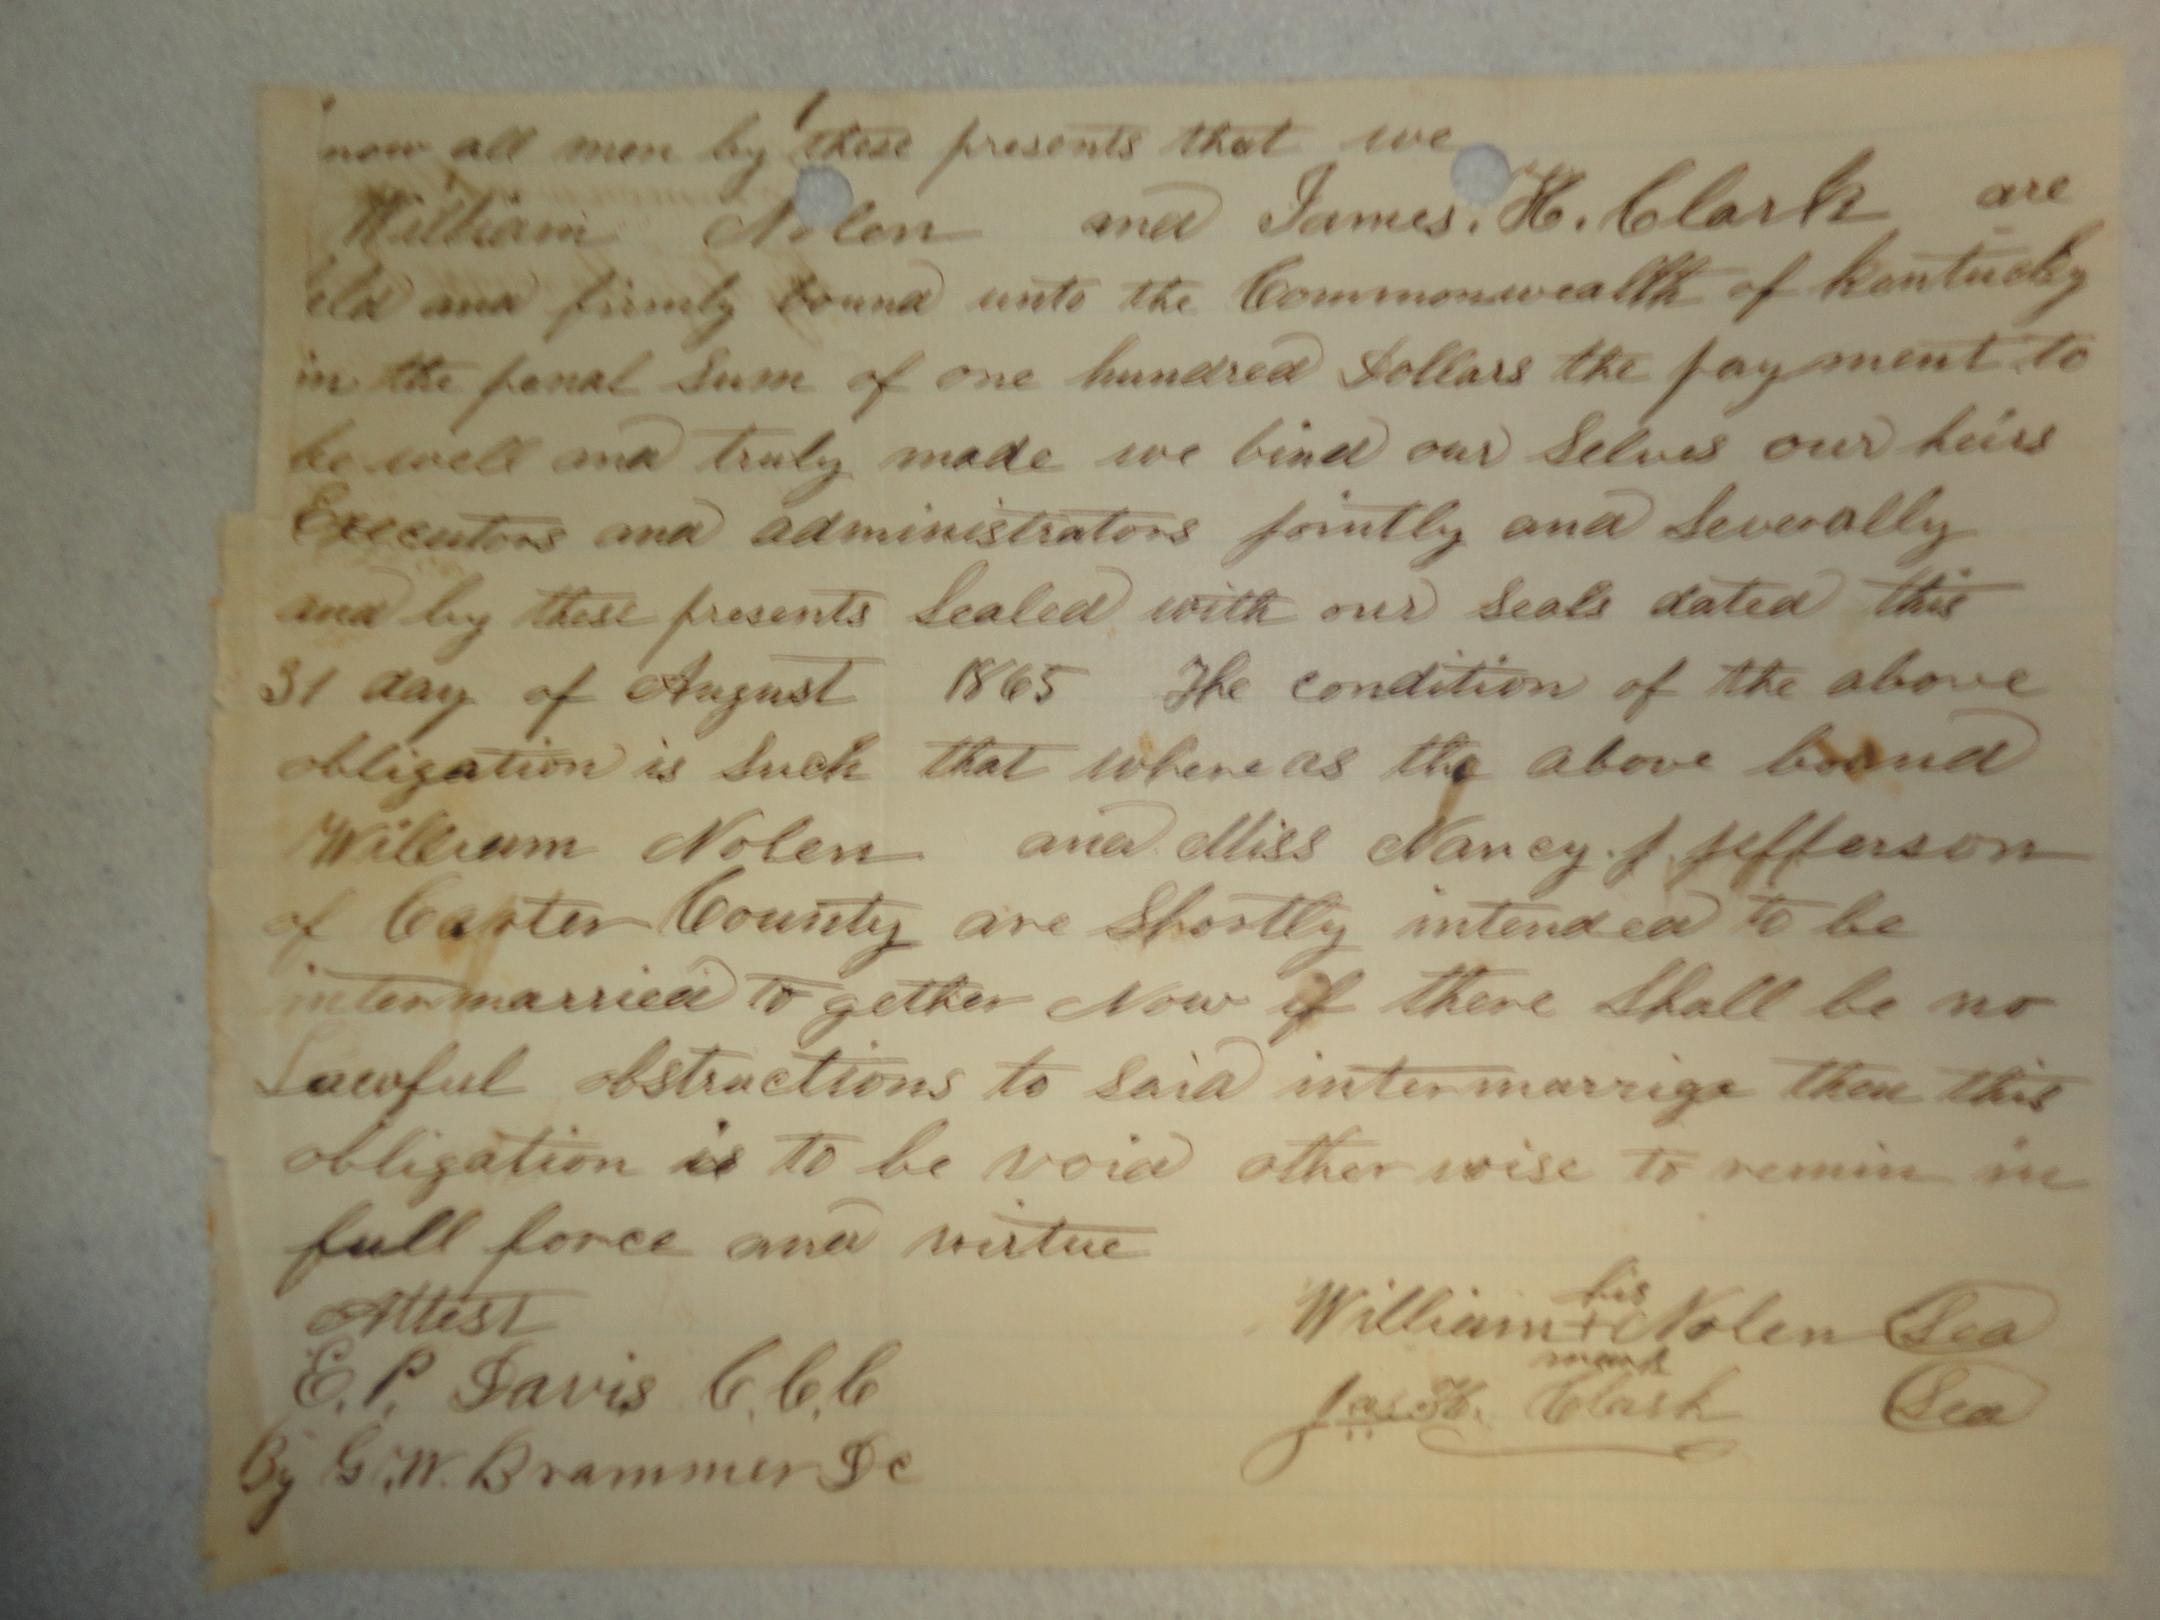 now all men by these presents that we
William Nolen and James. H. Clark are
eld and firmly bound unto the Commonwealth of Kentucky
in the penal Sum of one hundred Dollars the payment to
be well and truly made we bind our Selves our heirs
Executors and administrators jointly and Severally
and by these presents Sealed with our seals dated this
31 day of August 1865 The condition of the above
obligation is Such that where as the above bound
William Nolen and Miss Nancy. J Jefferson
of Carter County are Shortly intended to be
intermarried to gether Now if there Shall be no
Lawful obstructions to Said intermarrige then this
obligation is to be void other wise to remin in
full force and virtue
Attest
his
William + Nolen Sea
mark
E. P. Davis C. C. C
Jas. H. Clark Sea
By G. W. Brammer Dc